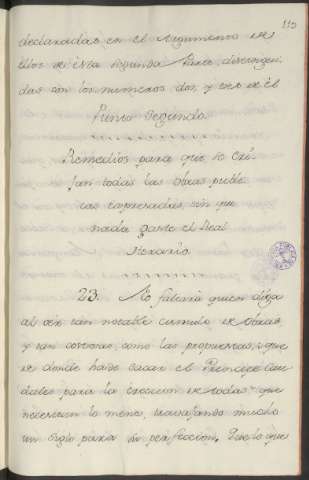 115
declaradas en el Argumento de
ellos de esta segunda Parte, distingui-
das con los numeros dos, y tres de el
Punto Segundo.
Remedios para que se eri-
jan todas las obras publi-
cas expresadas, sin que
nada gaste el Real
Herario
23. No faltaria quien diga
al oir tan notable cumulo de obras,
y tan costosas, como las propuestas, que
de donde ha de sacar el Principe cau-
dales para la ereccion de todas que
necesitan lo menos, trabajando mucho
un siglo para su perfeccion. Pues lo que